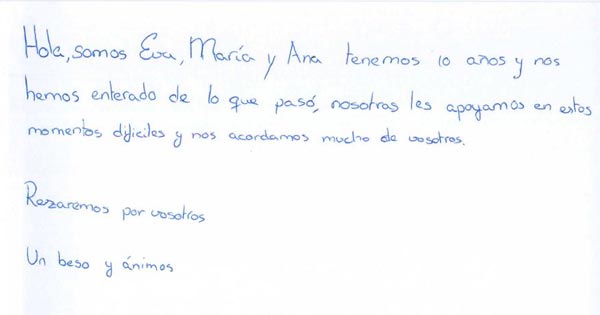 Hola, somos Eva, María y Ana tenemos 10 años y nos
hemos enterado de lo que pasó, nosotras les apoyamos en estos
momentos dificiles y nos acordamos mucho de vosotros.
Rezaremos por vosotros
Un beso y ánimos